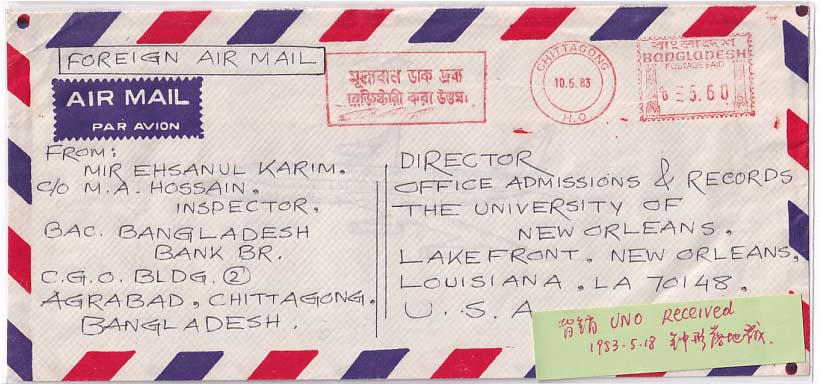 FOREIGN AIR MAIL
AIR MAIL
PAR AVION
মূল্যবান ডাক দ্রব্য
রেজিস্টারী করা উত্তম।
CHITTAGONG
10.5.83
H.O
বাংলাদেশ
BANGLADESH
POSTAGE PAID
5.60
FROM:
MIR EHSANUL KARIM.
C/O M.A. HOSSAIN,
INSPECTOR,
BAC. BANGLADESH
BANK BR.
C.G.O. BLDG. ②
AGRABAD, CHITTAGONG.
BANGLADESH.
DIRECTOR
OFFICE ADMISSIONS & RECORDS
THE UNIVERSITY OF
NEW ORLEANS.
LAKEFRONT. NEW ORLEANS,
LOUISIANA, LA 70148.
U.S.A
背销 UNO Received
1983.5.18 钟形落地戳.